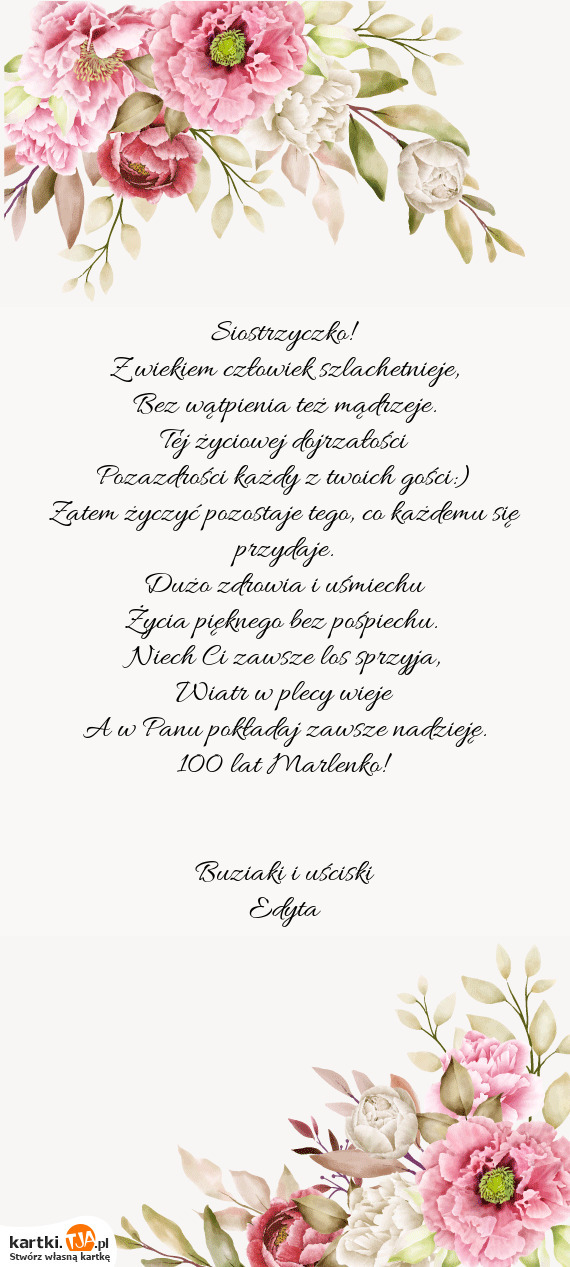 Siostrzyczko!
Z wiekiem człowiek szlachetnieje,
Bez wątpienia też mądrzeje.
Tej życiowej dojrzałości
Pozazdrości każdy z twoich gości:)
Zatem życzyć pozostaje tego, co każdemu się
przydaje.
Dużo zdrowia i uśmiechu
Życia pięknego bez pośpiechu.
Niech Ci zawsze los sprzyja,
Wiatr w plecy wieje
A w Panu pokładaj zawsze nadzieję.
100 lat Marlenko!
Buziaki i uściski
Edyta
kartki.TJA.pl
Stwórz własną kartkę